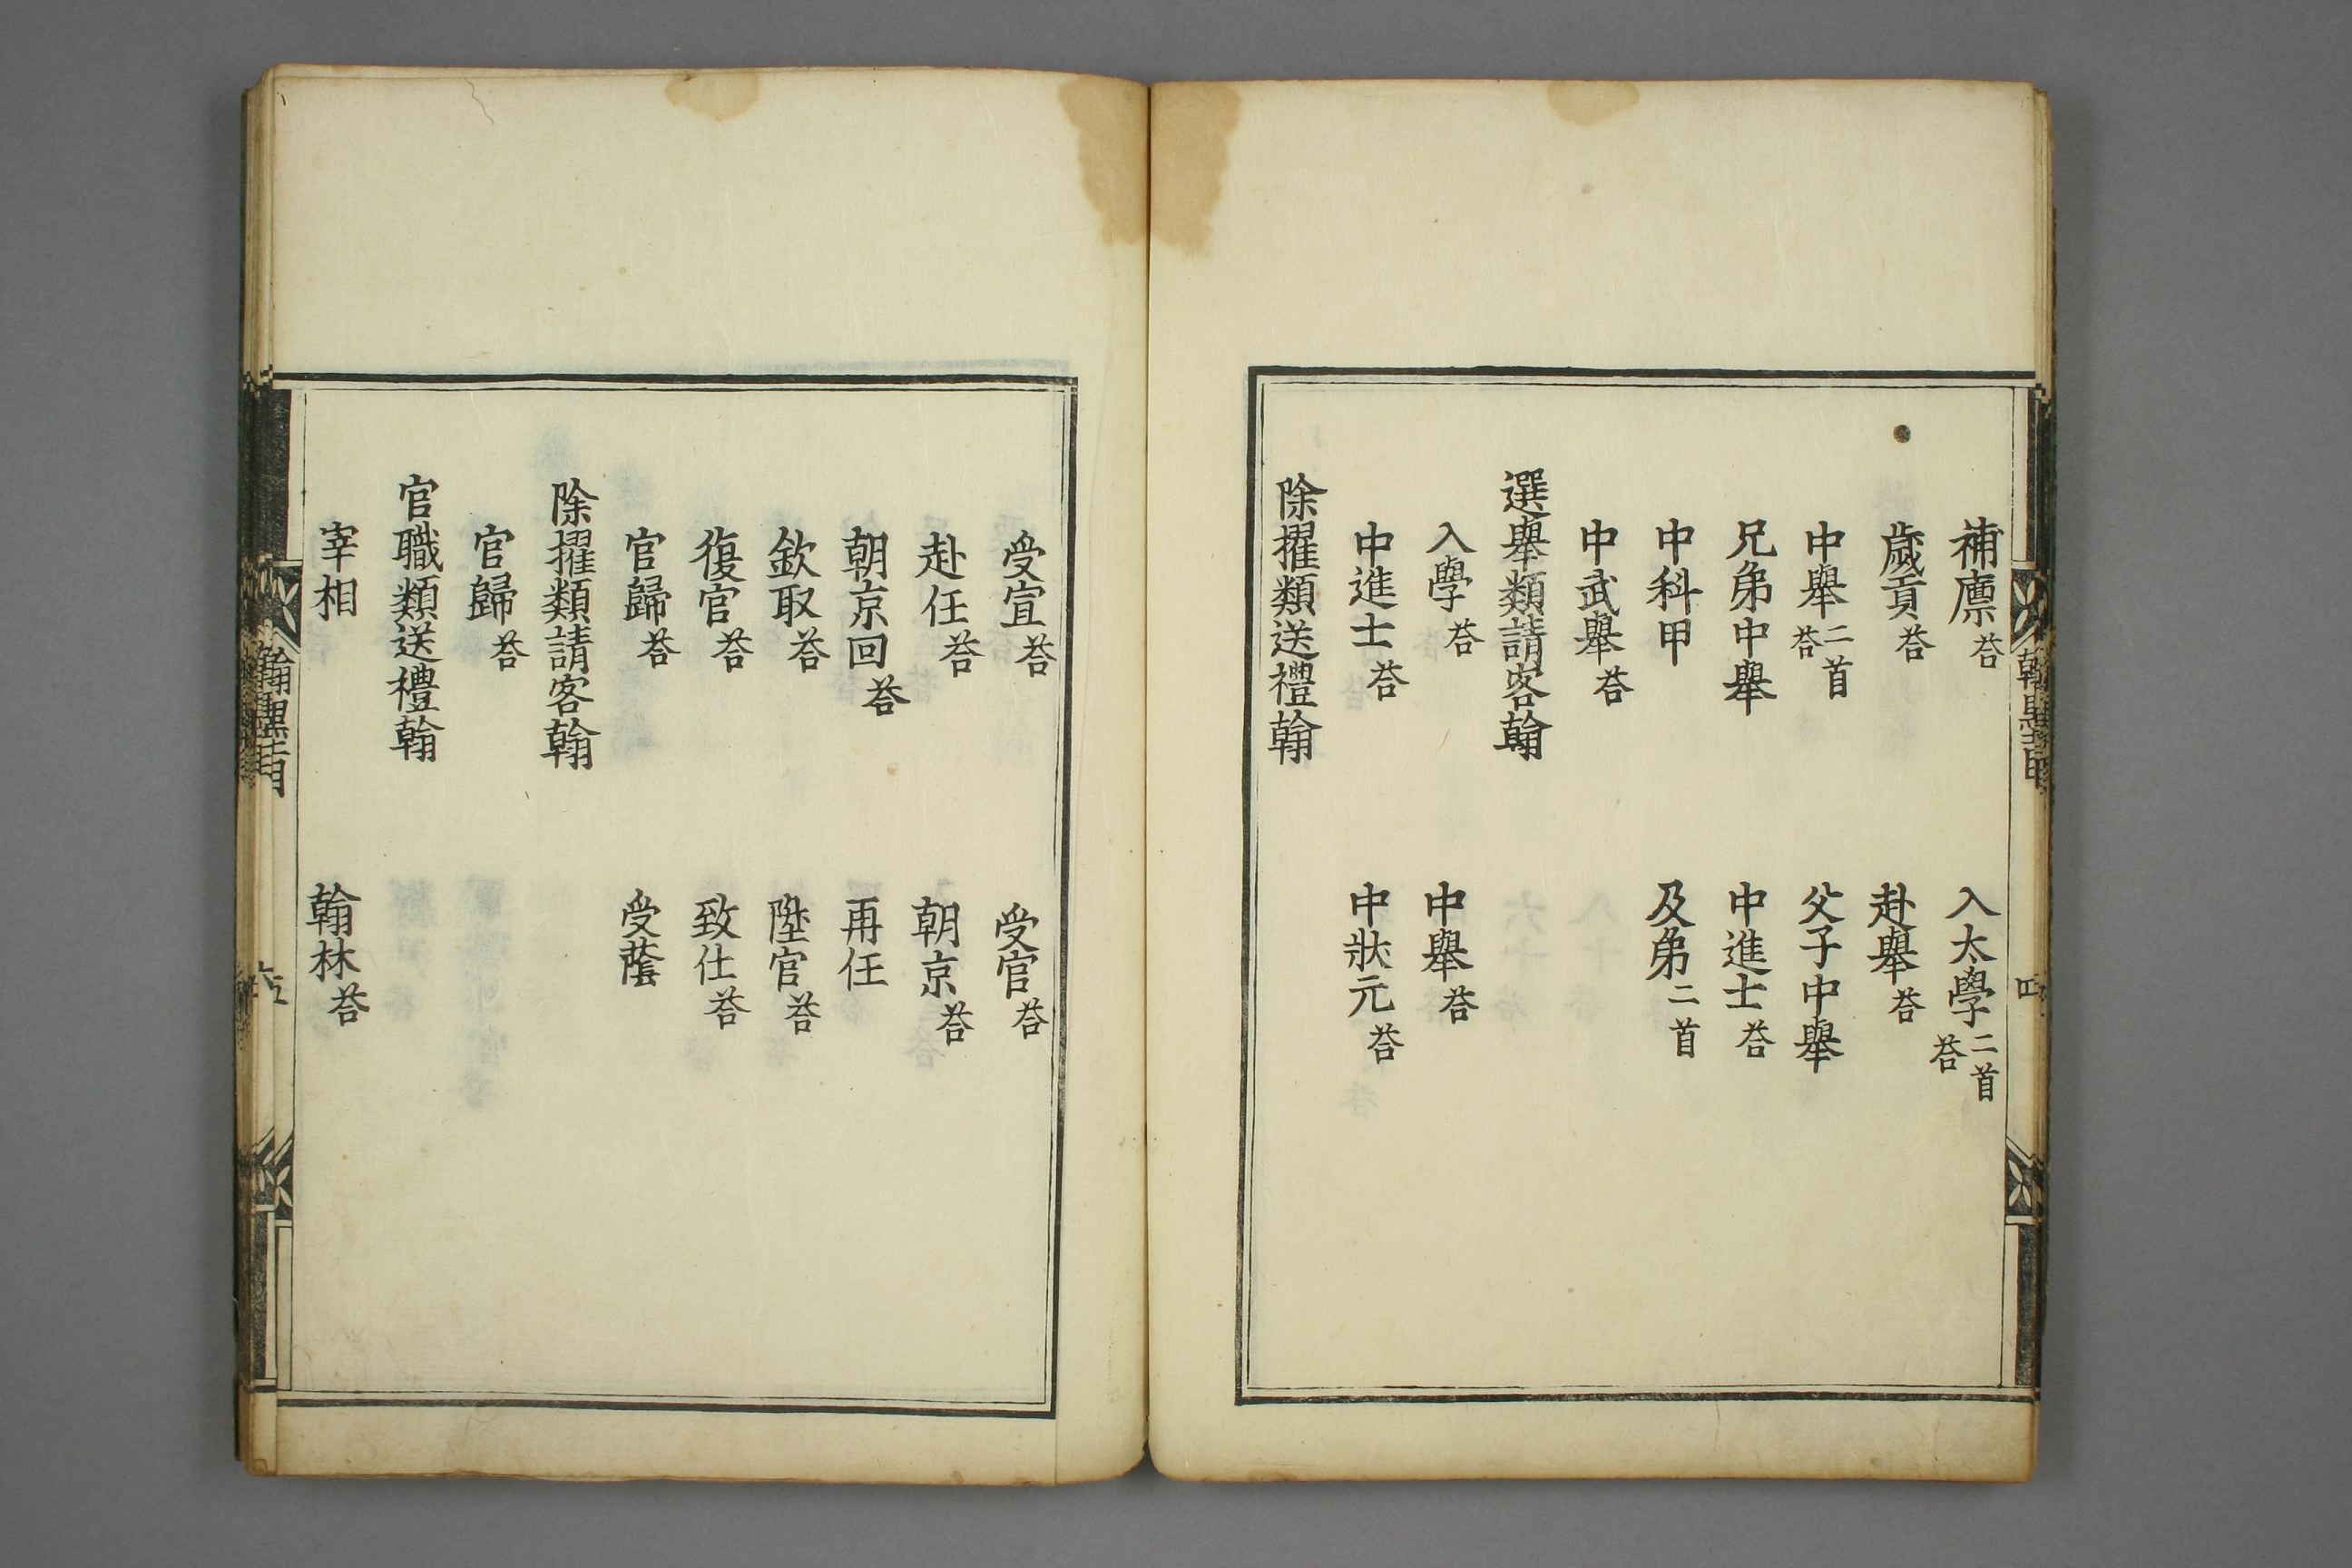 補廪荅　入太學二首荅
歲貢荅　赴舉荅
中舉二首荅　父子中舉
兄弟中舉　中進士荅
中科甲　及第二首
中武舉荅
選舉類請客翰
入學荅　中舉荅
中進士荅　中狀元荅
除擢類送禮翰
受宣荅　受官荅
赴任荅　朝京荅
朝京回荅　再任
欽取荅　陞官荅
復官荅　致仕荅
官歸荅　受蔭
除擢類請客翰
官歸荅
官職類送禮翰
宰相　翰林荅